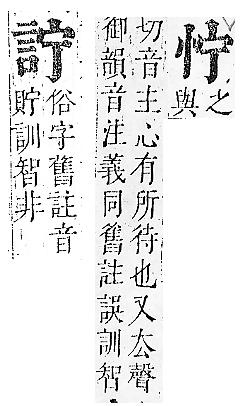 㤖
之
與
切音主心有所待也又厺聲
御韻音注義同舊註誤訓智
詝
俗字舊註音
貯訓智非